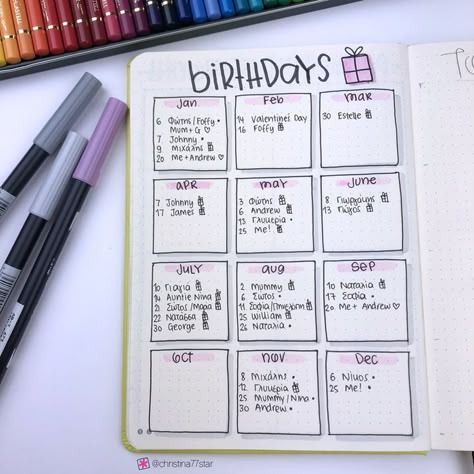 BIRTHDAYS
Jan
6 Φώτης/Foffy •
Mum+G ♡
7 Johnny •
9 Μιχάλης
20 Me+Andrew ♡
Feb
14 Valentines Day
16 Foffy
Mar
30 Estelle
APR
7 Johnny
17 James
May
3 Φώτης
6 Andrew
13 Γλυκερία •
25 Me!
June
8 Γιωργάκης
13 Γιώργος
July
10 Γιαγιά
14 Auntie Nina
21 Σώτος/Μάρα
22 Νατάσσα
30 George
Aug
2 Mummy
6 Σώτος •
11 Σοφία/
25 William
26 Ναταλία •
Sep
10 Ναταλία
17 Σοφία •
20 Me+ Andrew ♡
Oct
Nov
8 Μιχάλης •
12 Γλυκερία
25 Mummy/Nina •
30 Andrew •
Dec
6 Νίκος •
25 Me! •
@christina77star